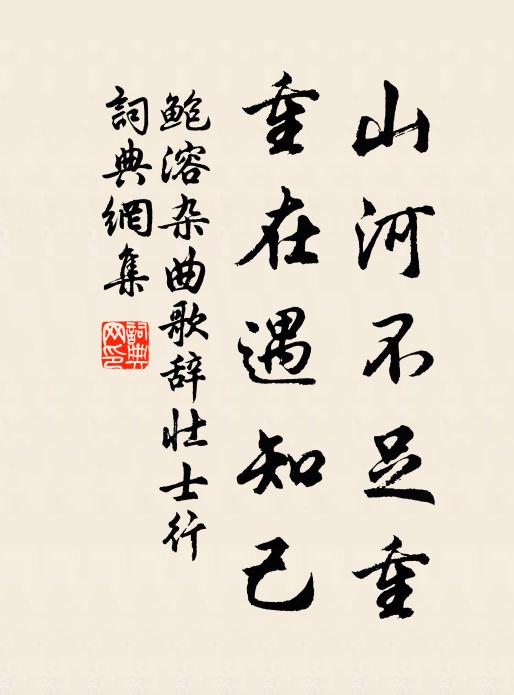 山河不足重
重在遇知己
鲍溶杂曲歌辞壮士行
詞典網集
詞典网印